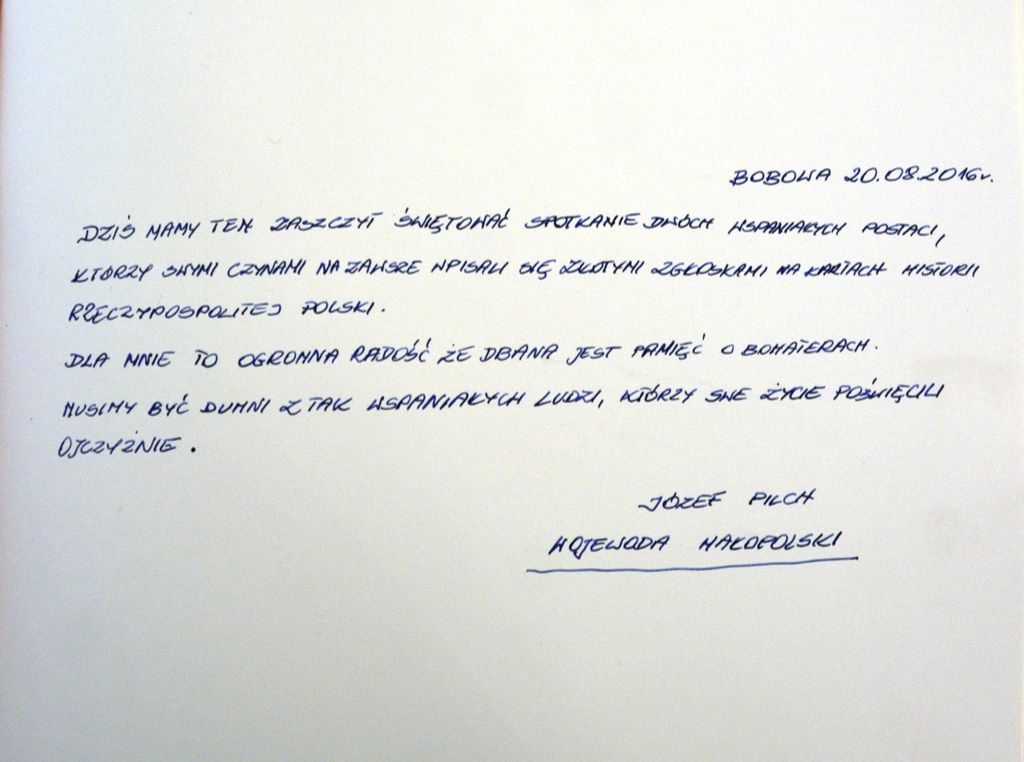 BOBOWA 20.08.2016r.
DZIŚ MAMY TEN ZASZCZYT ŚWIĘTOWAĆ SPOTKANIE DWÓCH WSPANIAŁYCH POSTACI,
KTÓRZY SWYMI CZYNAMI NA ZAWSZE WPISALI SIĘ ZŁOTYMI ZGŁOSKAMI NA KARTACH HISTORII
RZECZYPOSPOLITEJ POLSKI.
DLA MNIE TO OGROMNA RADOŚĆ ŻE DBANA JEST PAMIĘĆ O BOHATERACH.
MUSIMY BYĆ DUMNI Z TAK WSPANIAŁYCH LUDZI, KTÓRZY SWE ŻYCIE POŚWIĘCILI
OJCZYŹNIE.
JÓZEF PILCH
WOJEWODA MAŁOPOLSKI